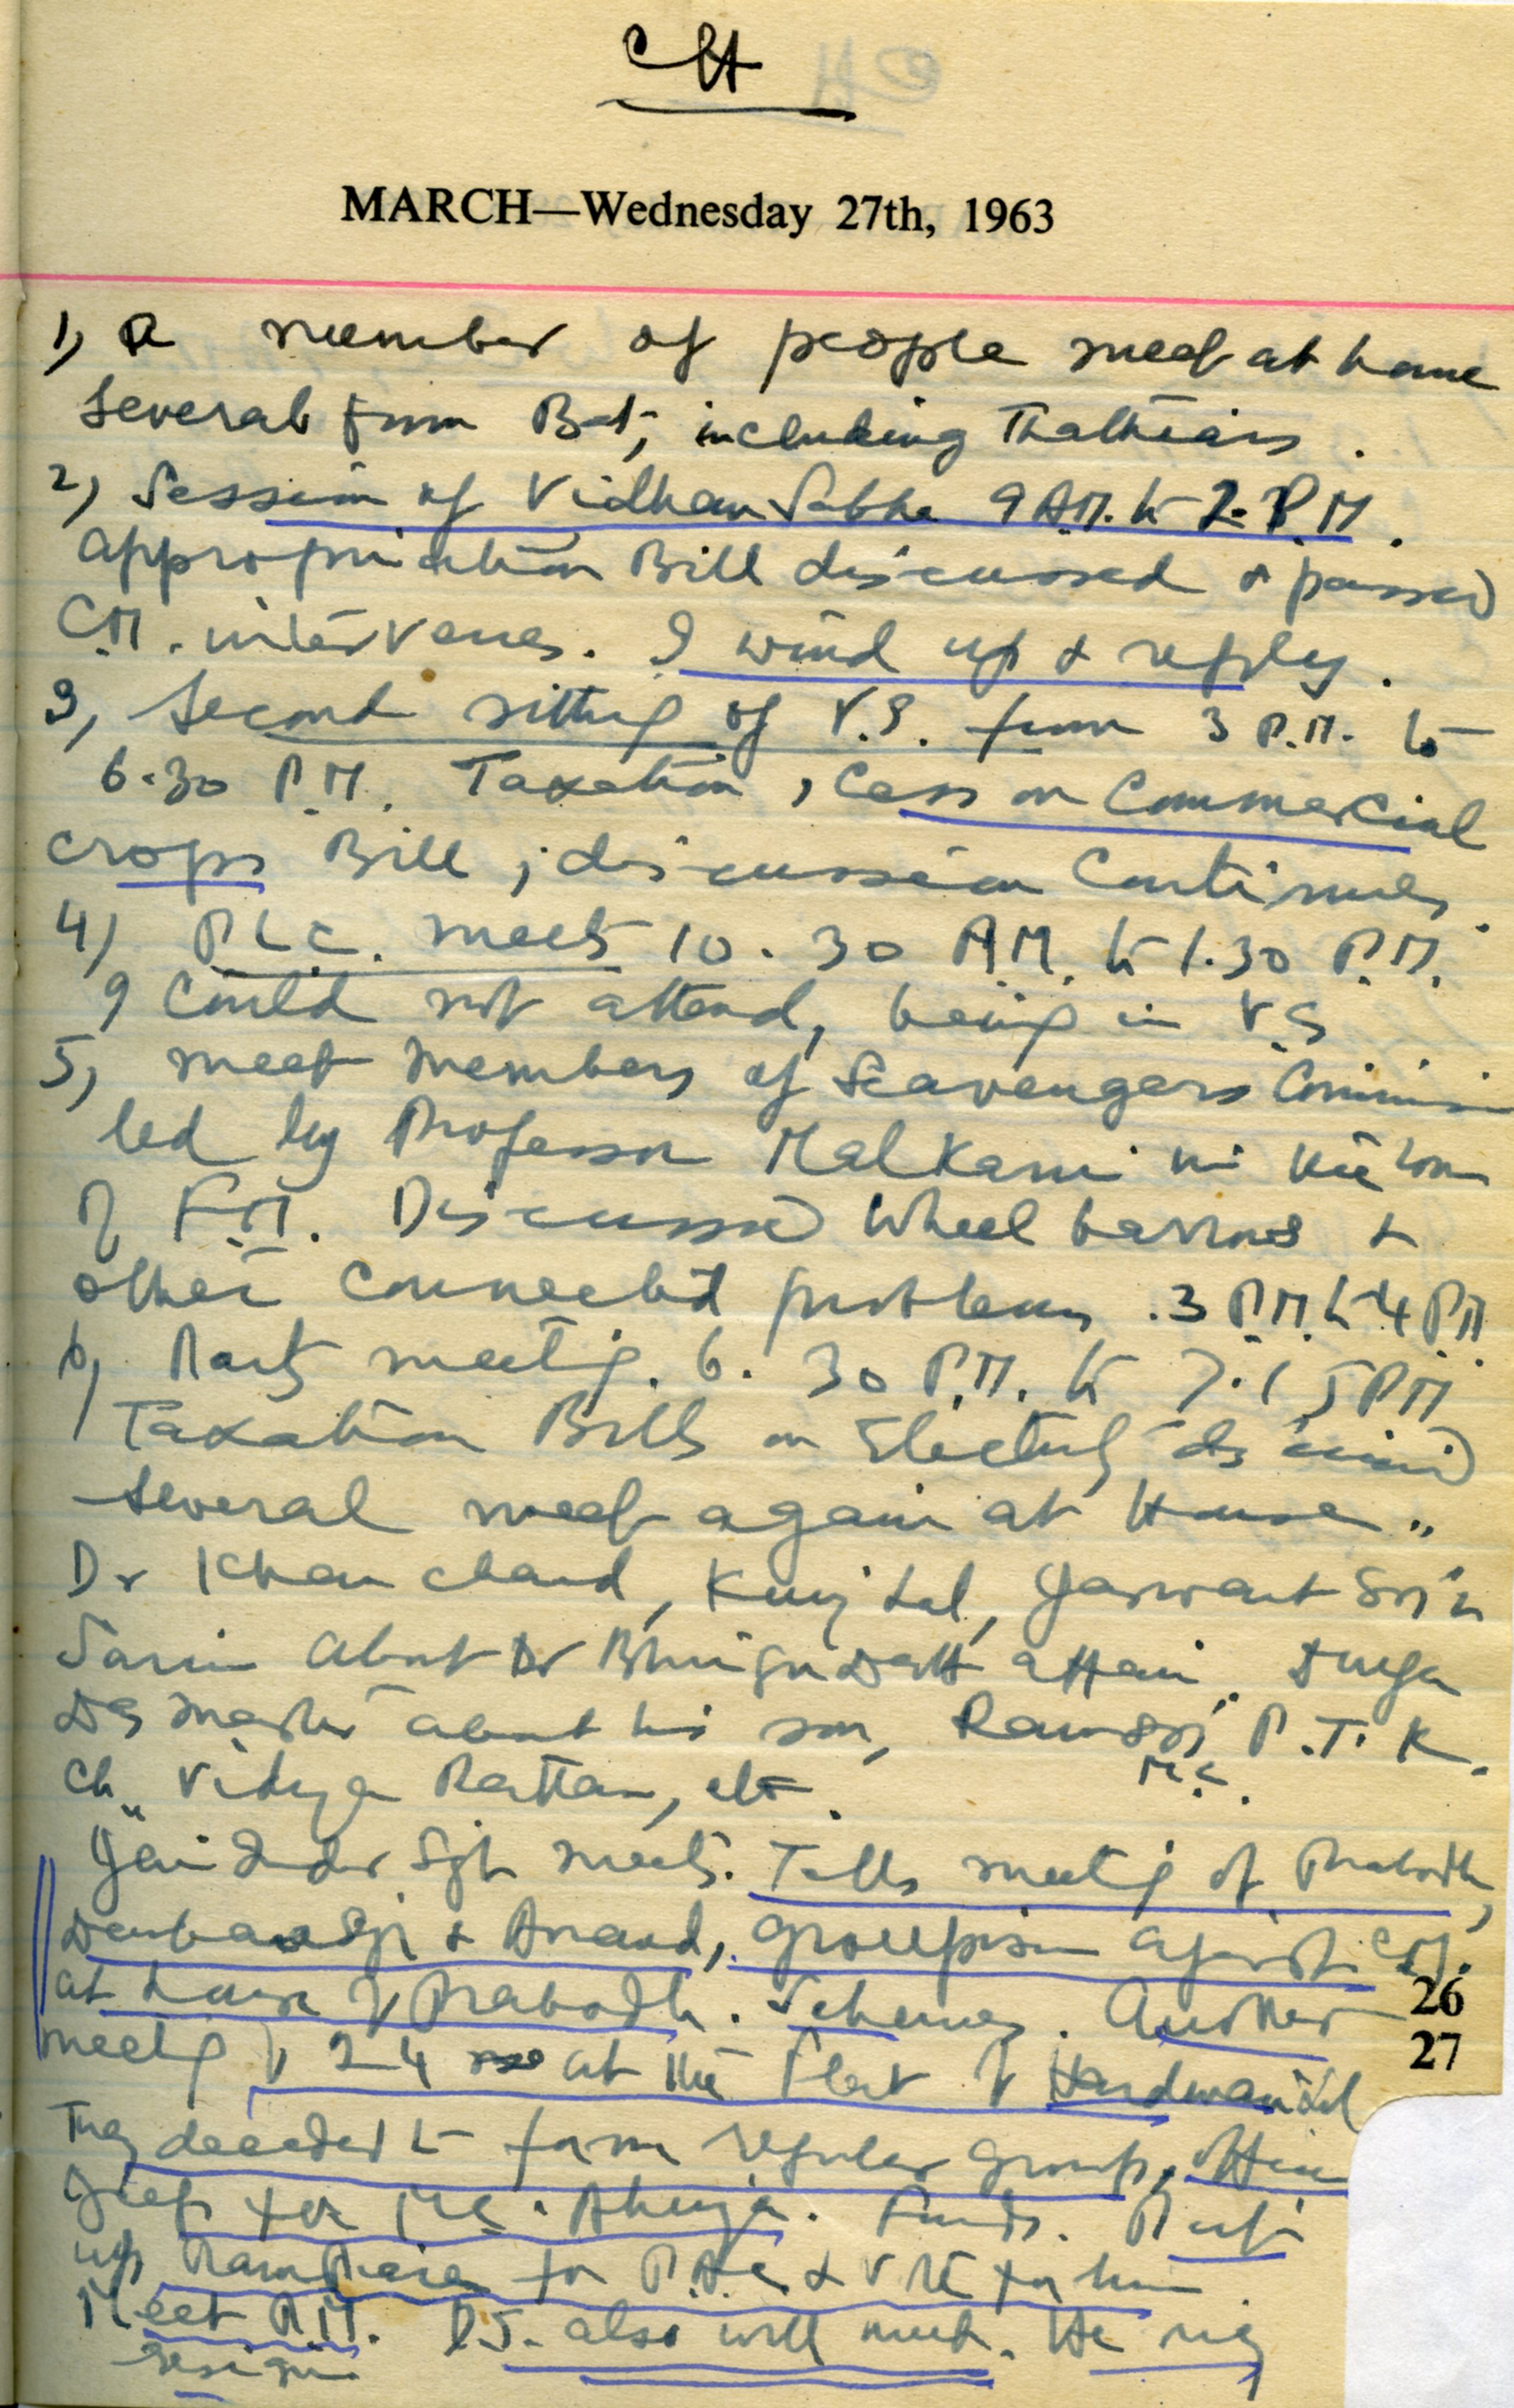 CH
MARCH—Wednesday 27th, 1963
1) A number of people meet at home
several from Bat, including Thathiars.
2) Session of Vidhan Sabha 9 A.M. to 2 P.M.
Appropriation Bill discussed & passed
C.M. intervenes. I wind up & reply.
3) Second sitting of V.S. from 3 P.M. to
6.30 P.M. Taxation, Cess on Commercial
crops Bill; discussion continues.
4) P.L.C. meets 10.30 A.M. to 1.30 P.M.
I could not attend, being in V.S
5) meet members of Scavengers
led by Professor Malkani in the
of F.M. Discussed wheel barrows &
other connected problems. 3 P.M. to 4 PM.
6) Party meeting. 6.30 P.M. to 7.15 PM
Taxation Bills on
several meet again at House.
Dr Khan chand, Kunj Lal, Jaswant
Sarin about Dr Bhrigu Datt affair. Durga
Das master about his son, P.T.K.
Ch. Vidya Rattan, etc. M.C.
meets. Tells meeting of Prabodh,
& Anand, groupism against C.M.
at house of Prabodh. Schemes. Another
26
meeting 24 at the Flat of Hardwari Lal
27
They decided to form regular group, office
Jeep for Ahuja. Funds.
up for P.A.C. & for him
Meet P.M. D.J. also will meet. He may
resign.